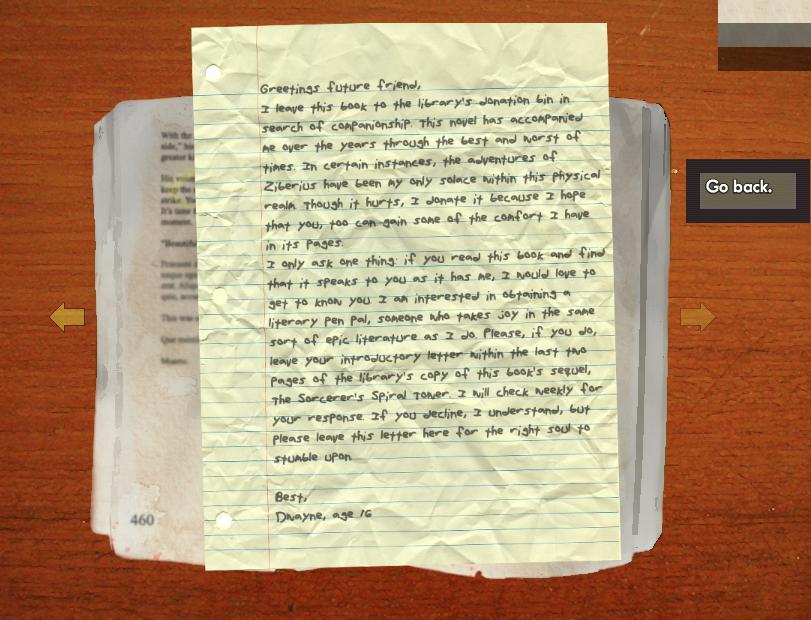 Greetings future friend,
I leave this book to the library's donation bin in
search of companionship. This novel has accompanied
me over the years through the best and worst of
times. In certain instances, the adventures of
Ziberius have been my only solace within this physical
realm. Though it hurts, I donate it because I hope
that you, too can gain some of the comfort I have
in its pages.
I only ask one thing: if you read this book and find
that it speaks to you as it has me, I would love to
get to know you. I am interested in obtaining a
literary pen pal, someone who takes joy in the same
sort of epic literature as I do. Please, if you do,
leave your introductory letter within the last two
pages of the library's copy of this book's sequel,
The Sorcerer's Spiral Tower. I will check weekly for
your response. If you decline, I understand, but
please leave this letter here for the right soul to
stumble upon.
Best,
Dwayne, age 16
With the
side," his
greater ki
His
keep the
strike. Yo
It's time
moment.
"Beautifu
This was
Que
460
Go back.